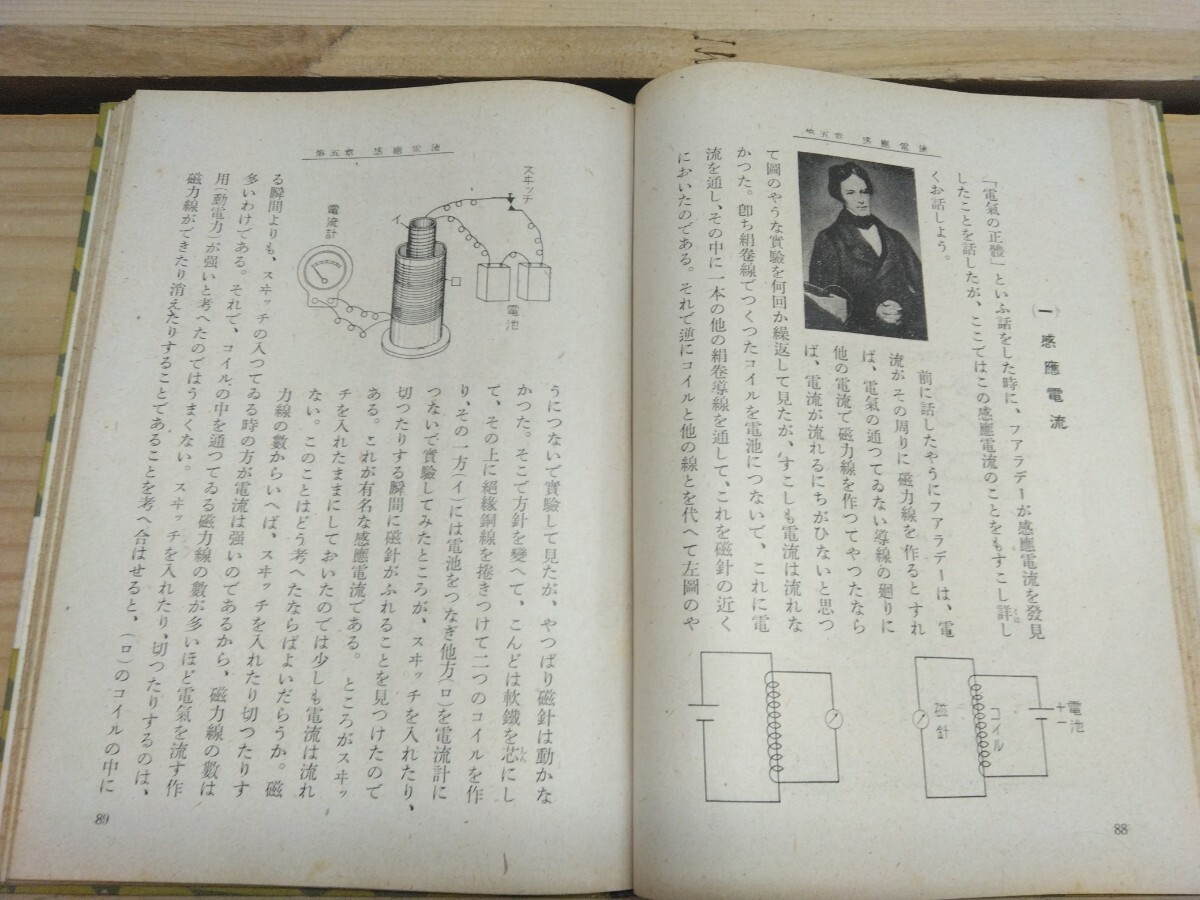 第五章 感應電流
(一) 感應電流
「電氣の正體」といふ話をした時に、フアラデーが感應電流を發見
したことを話したが、ここではこの感應電流のことをもすこし詳し
くお話しよう。
前に話したやうにフアラデーは、電
流がその周りに磁力線を作るとすれ
ば、電氣の通つてゐない導線の廻りに
他の電流で磁力線を作つてやつたなら
ば、電流が流れるにちがひないと思つ
て圖のやうな實驗を何回か繰返して見たが、すこしも電流は流れな
かつた。卽ち絹卷線でつくつたコイルを電池につないで、これに電
流を通し、その中に一本の他の絹卷導線を通して、これを磁針の近く
においたのである。それで逆にコイルと他の線とを代へて左圖のや
電池
+-
コイル
磁針
88
第五章 感應電流
スヰッチ
イ
ロ
電池
電流計
うにつないで實驗して見たが、やつぱり磁針は動かな
かつた。そこで方針を變へて、こんどは軟鐵を芯にし
しん
て、その上に絕緣銅線を捲きつけて二つのコイルを作
り、その一方(イ)には電池をつなぎ他方(ロ)を電流計に
つないで實驗してみたところが、スヰッチを入れたり、
切つたりする瞬間に磁針がふれることを見つけたので
ある。これが有名な感應電流である。 ところがスヰッ
チを入れたままにしておいたのでは少しも電流は流れ
ない。このことはどう考へたならばよいだらうか。磁
力線の數からいへば、スヰッチを入れたり切つたりす
る瞬間よりも、スヰッチの入つてゐる時の方が電流は強いのであるから、磁力線の數は
多いわけである。それで、コイルの中を通つてゐる磁力線の數が多いほど電氣を流す作
用(動電力)が強いと考へたのではうまくない。スヰッチを入れたり、切つたりするのは、
磁力線ができたり消えたりすることであることを考へ合はせると、(ロ)のコイルの中に
89